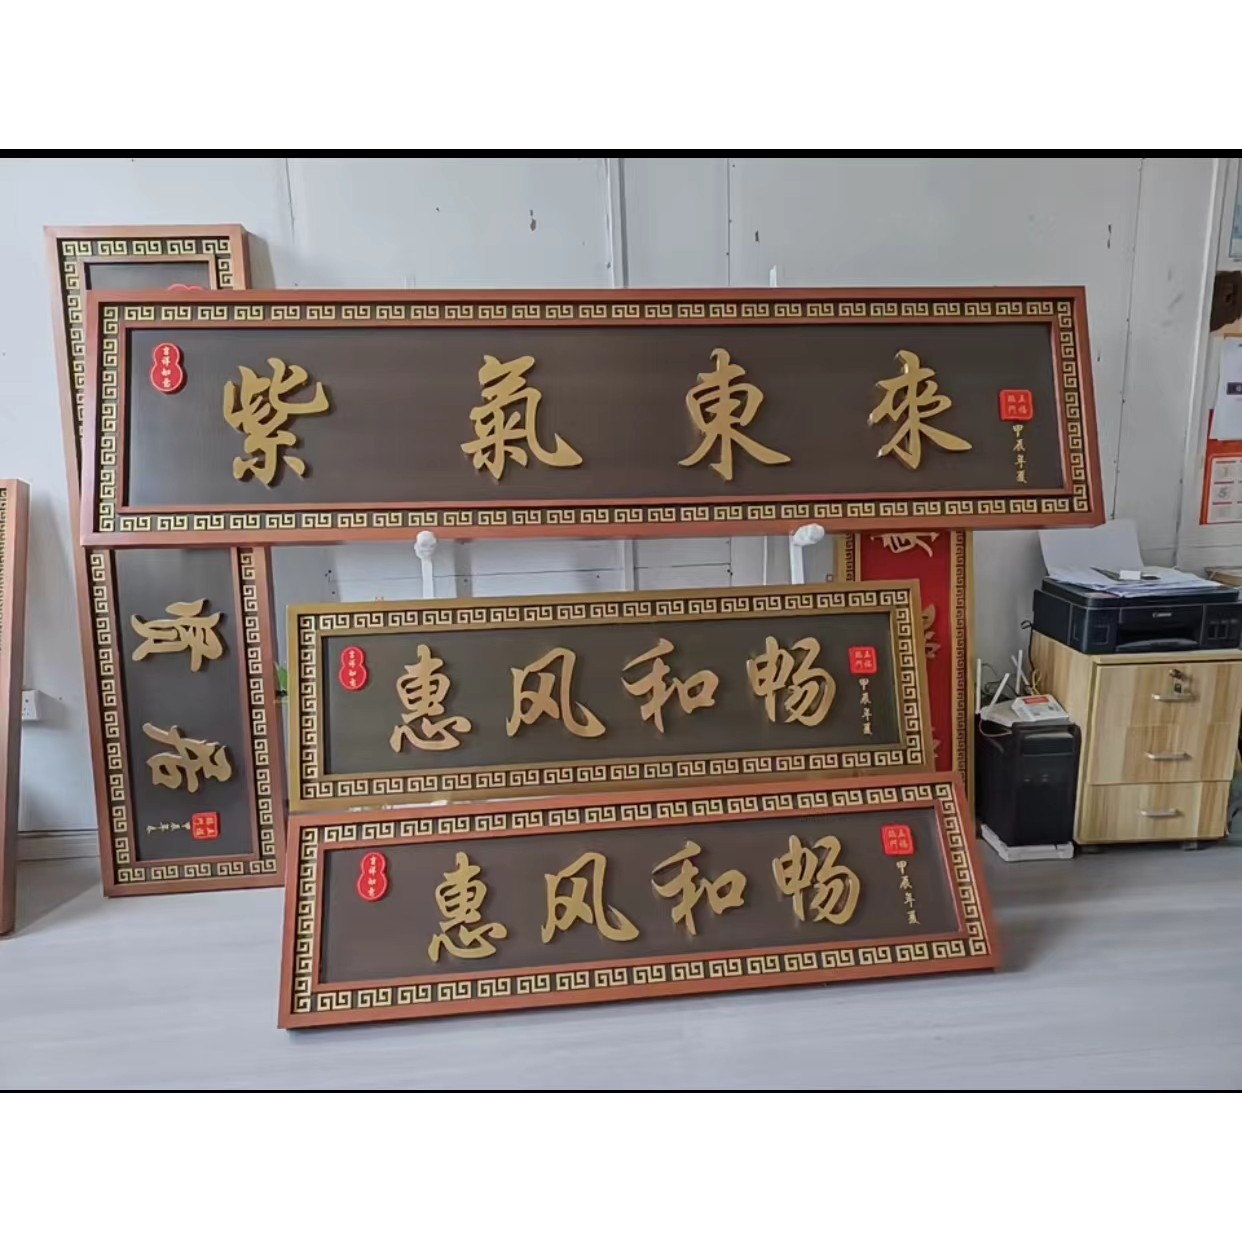 吉祥如意
紫氣東來
五福臨門
甲辰年夏
吉祥如意
惠风和畅
五福臨門
甲辰年夏
吉祥如意
惠风和畅
五福臨門
甲辰年夏
居
五福臨門
甲辰年春
Canon